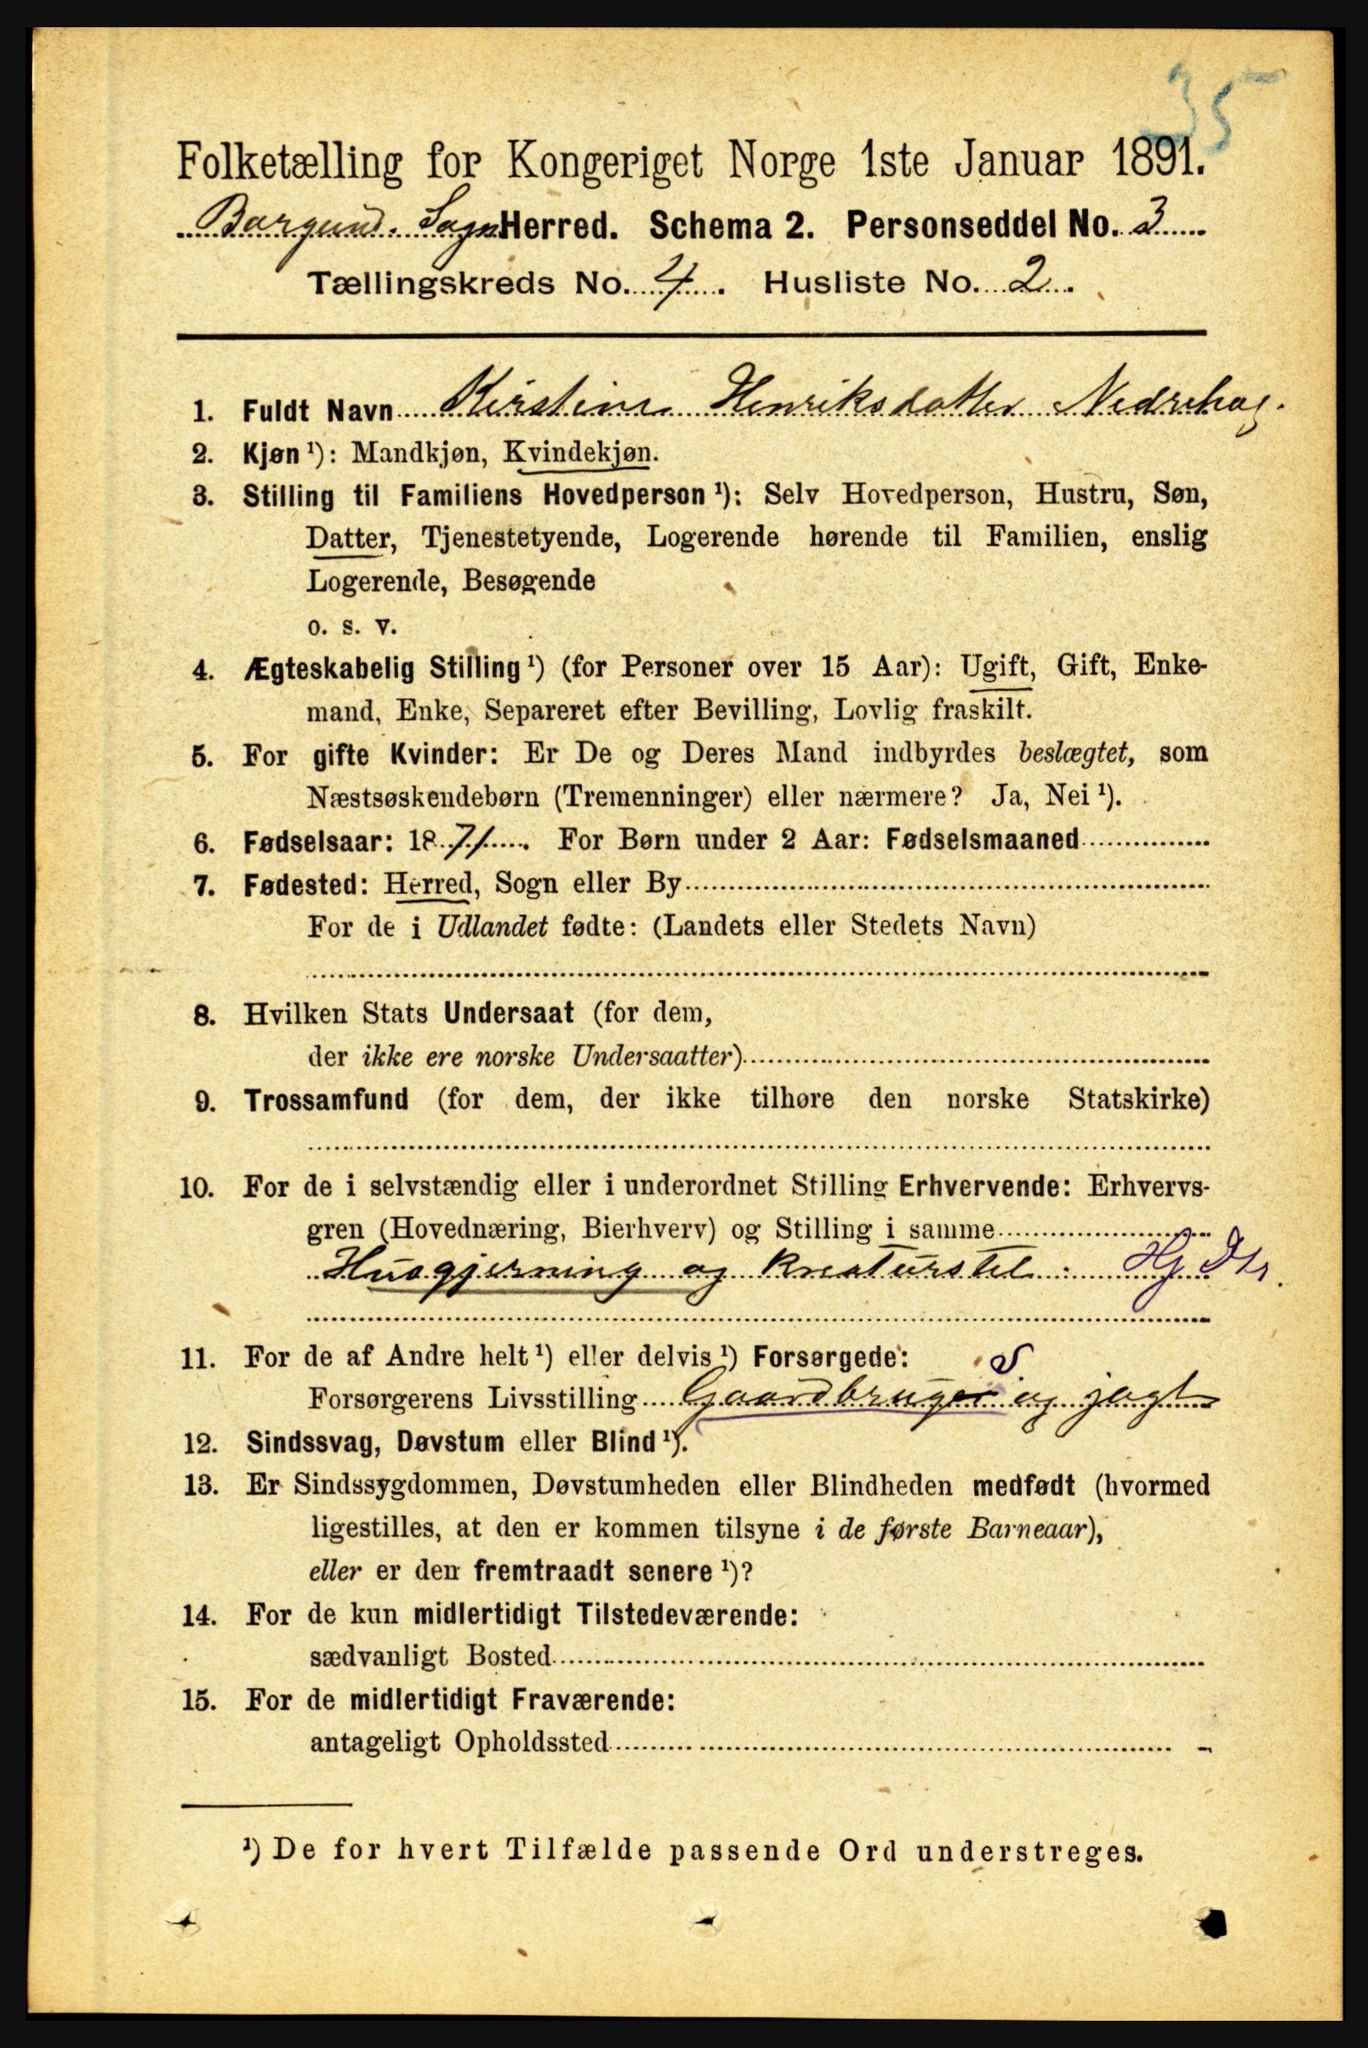 35
Folketælling for Kongeriget Norge 1ste Januar 1891.
Borgund. Sogn Herred. Schema 2. Personseddel No. 3
Tællingskreds No. 4. Husliste No. 2.
1. Fuldt Navn Kirstine Henriksdatter Nedrehag.
2. Kjøn ¹): Mandkjøn, Kvindekjøn.
3. Stilling til Familiens Hovedperson ¹): Selv Hovedperson, Hustru, Søn,
Datter, Tjenestetyende, Logerende hørende til Familien, enslig
Logerende, Besøgende
o. s. v.
4. Ægteskabelig Stilling ¹) (for Personer over 15 Aar): Ugift, Gift, Enke-
mand, Enke, Separeret efter Bevilling, Lovlig fraskilt.
5. For gifte Kvinder: Er De og Deres Mand indbyrdes beslægtet, som
Næstsøskendebørn (Tremenninger) eller nærmere? Ja, Nei ¹).
6. Fødselsaar: 1871. For Børn under 2 Aar: Fødselsmaaned
7. Fødested: Herred, Sogn eller By
For de i Udlandet fødte: (Landets eller Stedets Navn)
8. Hvilken Stats Undersaat (for dem,
der ikke ere norske Undersaatter)
9. Trossamfund (for dem, der ikke tilhøre den norske Statskirke)
10. For de i selvstændig eller i underordnet Stilling Erhvervende: Erhvervs-
gren (Hovednæring, Bierhverv) og Stilling i samme
Husgjerning og kreaturstel. Hj Dtr.
11. For de af Andre helt ¹) eller delvis ¹) Forsørgede: S
Forsørgerens Livsstilling Gaardbruger og jagt
12. Sindssvag, Døvstum eller Blind ¹).
13. Er Sindssygdommen, Døvstumheden eller Blindheden medfødt (hvormed
ligestilles, at den er kommen tilsyne i de første Barneaar),
eller er den fremtraadt senere ¹)?
14. For de kun midlertidigt Tilstedeværende:
sædvanligt Bosted
15. For de midlertidigt Fraværende:
antageligt Opholdssted
¹) De for hvert Tilfælde passende Ord understreges.